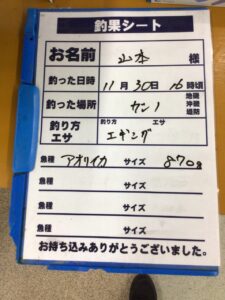 釣果シート
お名前 山本 様
釣った日時 11月30日 16時頃
釣った場所 カンノ 地磯 沖磯 堤防
釣り方 エサ 釣り方 エサ エギング
魚種 アオリイカ サイズ 870g
魚種 サイズ
魚種 サイズ
魚種 サイズ
お持ち込みありがとうございました。